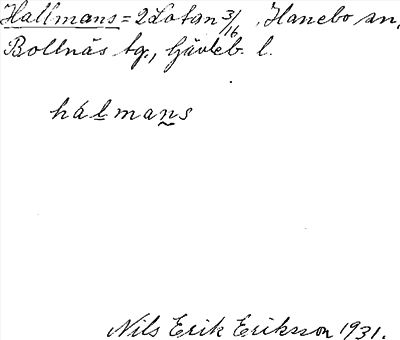 Hallmans = 2 Lotan 3/16, Hanebo sn,
Bollnäs tg., Gävleb. l.
hálmans
Nils Erik Eriksson 1931.